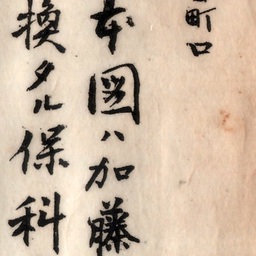 町口
本図ハ加藤
換タル保科